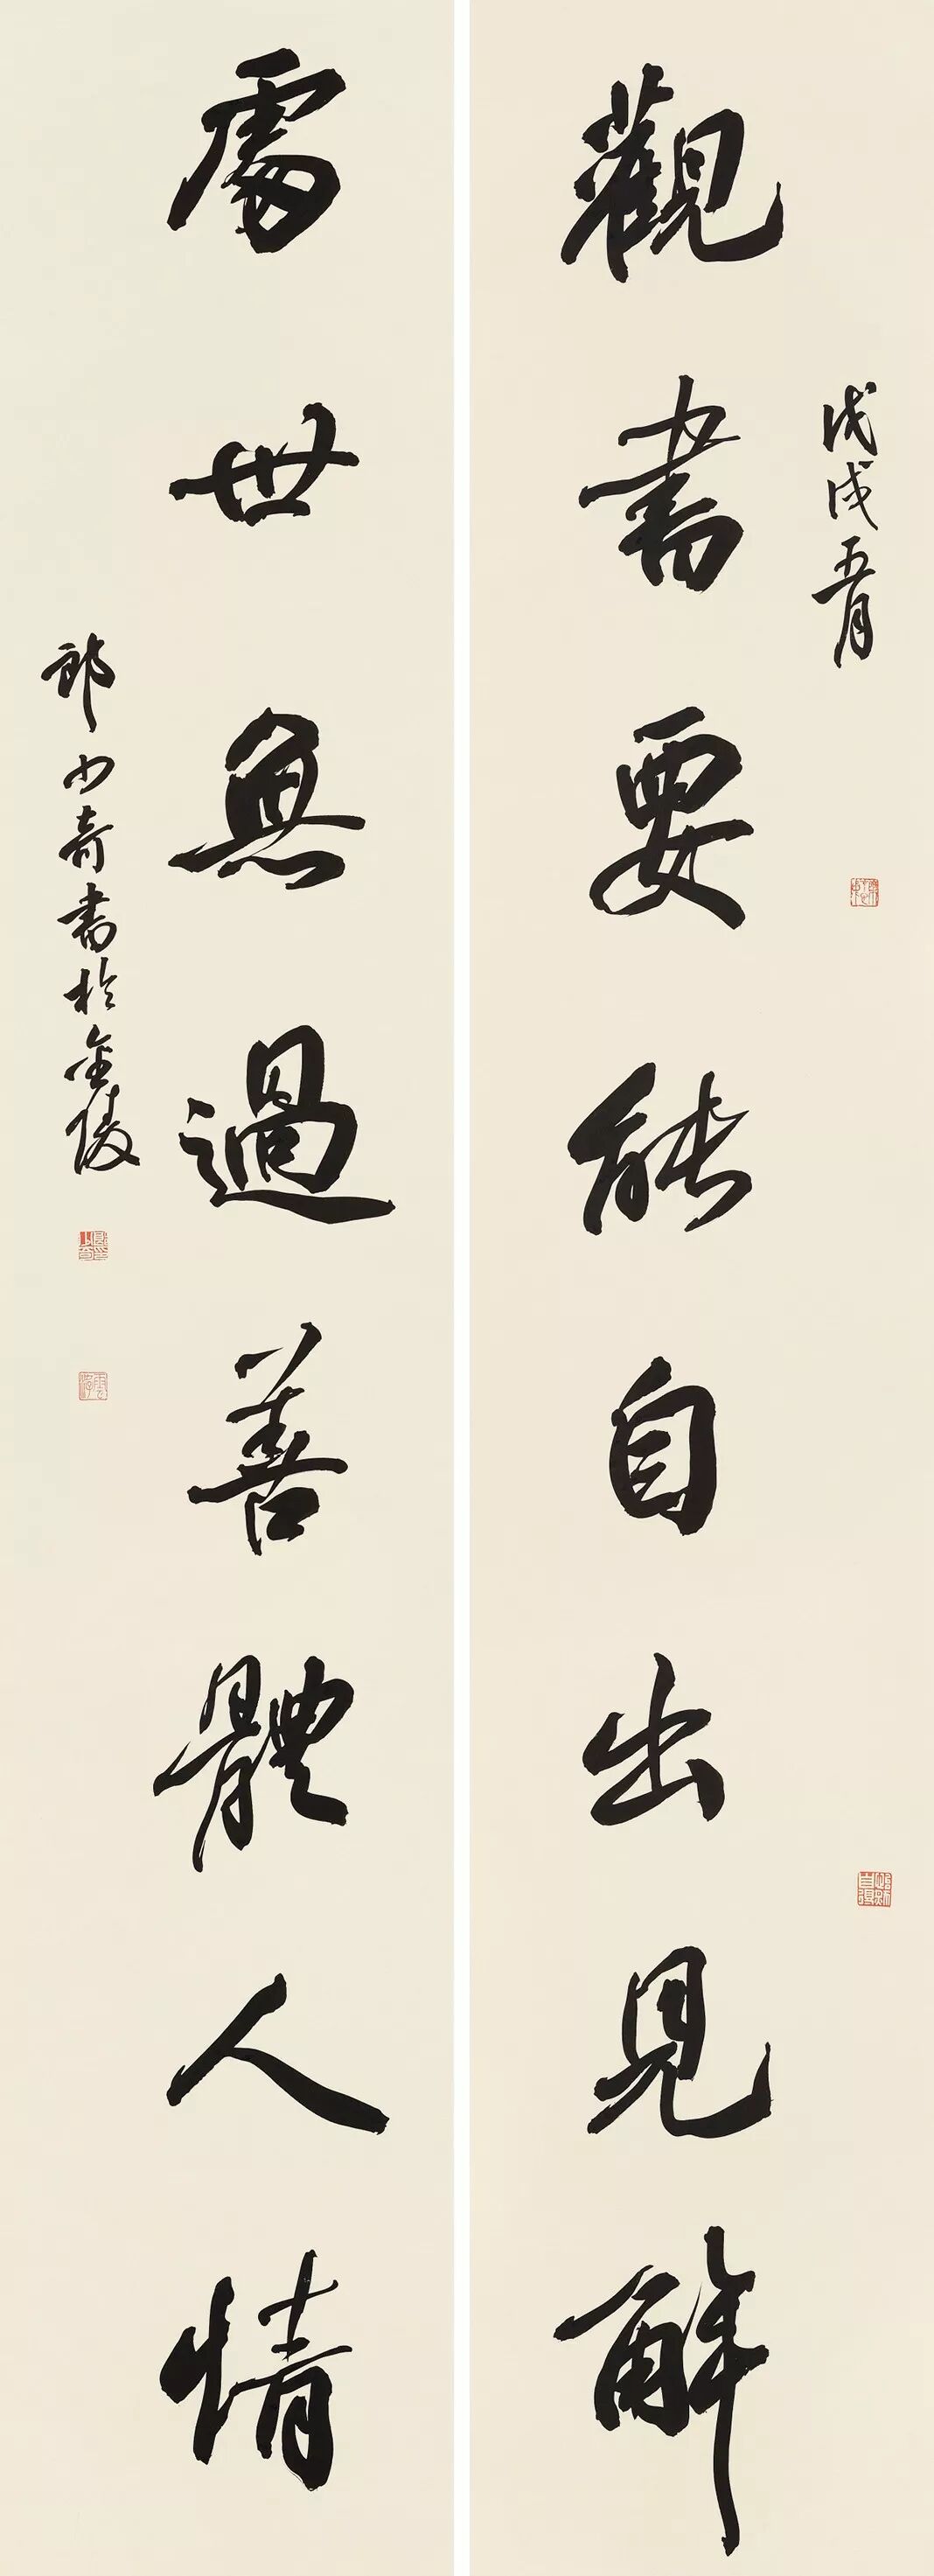 觀書要能自出見解
戊戌五月
處世無過善體人情
郎少奇書於金陵